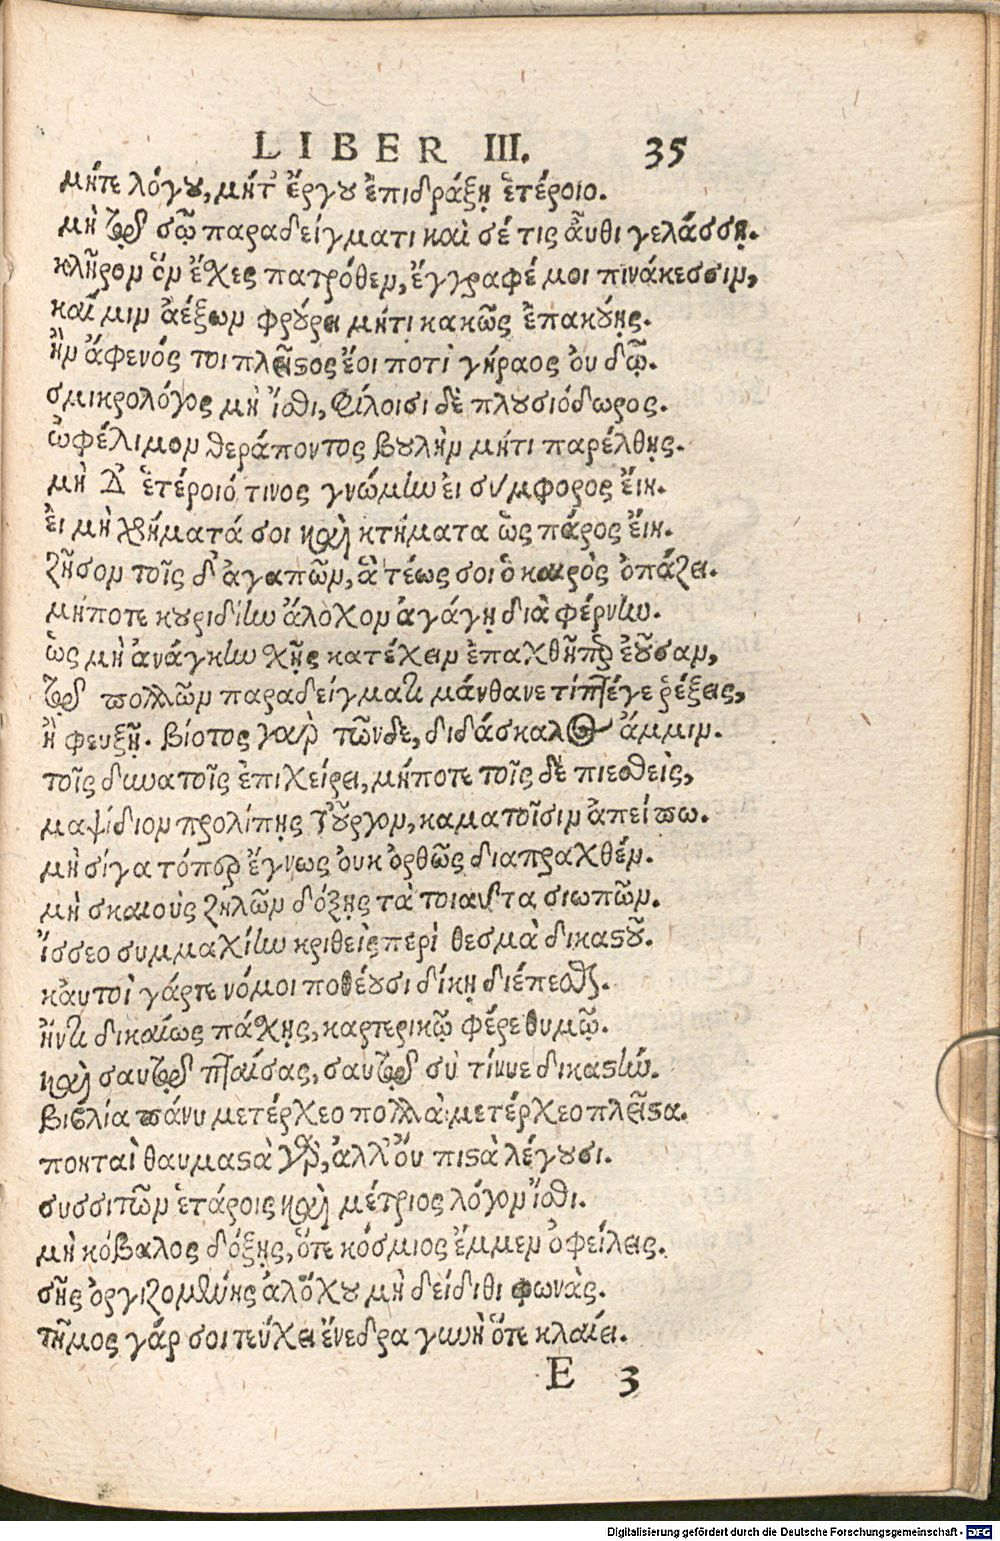 LIBER III. 35
μήτε λόγου, μήτ᾽ ἔργου ἐπιδράξῃ ἑτέροιο.
μὴ ἐπὶ σῷ παραδείγματι καὶ σέ τις αὖθι γελάσσῃ.
κλῆρον ὃν ἔχες πατρόθεν, ἔγγραφέ μοι πινάκεσσιν,
καί μιν ἀέξων φρούρει μήτι κακῶς ἐπακούῃς.
ἢν ἄφενός τοι πλεῖστος ἔοι ποτὶ γήραος οὐδῷ.
σμικρολόγος μὴ ἴσθι, φίλοισι δὲ πλουσιόδωρος.
ὠφέλιμον θεράποντος βουλὴν μήτι παρέλθῃς.
μὴ δ᾽ ἑτέροιό τινος γνώμην εἰ σύμφορος εἴη.
εἰ μὴ χρήματά σοι καὶ κτήματα ὡς πάρος εἴη.
ζῆσον τοῖς δ᾽ ἀγαπῶν, ἃ τέως σοι ὁ καιρὸς ὀπάζει.
μήποτε κουριδίην ἄλοχον ἀγάγῃ διὰ φέρνην.
ὡς μὴ ἀνάγκην χῇς κατέχειν ἐπαχθῆ περ ἐοῦσαν,
πολλῶν παραδείγματι μάνθανε τίπτέ γε ῥέξεις,
ἢ φευξῇ. βίοτος γὰρ τῶνδε, διδάσκαλος ἄμμιν.
τοῖς δυνατοῖς ἐπιχείρει, μήποτε τοῖς δὲ πιεσθεὶς,
μαψίδιον προλίπῃς τοὖργον, καματοῖσιν ἀπείπω.
μὴ σίγα τόπερ ἔγνως οὐκ ὀρθῶς διαπραχθέν.
μὴ σκαιοὺς ζηλῶν δόξῃς τὰ τοιαῦτα σιωπῶν.
ἴσσεο συμμαχίην κριθεὶς περὶ θεσμὰ δικαστοῦ.
καυτοὶ γάρ τε νόμοι ποθέουσι δίκῃ διέπεσθαι.
ἤν τι δικαίως πάχῃς, καρτερικῷ φέρε θυμῷ.
καὶ σαυτὸν πταίσας, σαυτὸν σὺ τίννυε δικαστήν.
βιβλία πάνυ μετέρχεο πολλὰ μετέρχεο πλεῖστα.
ποηταὶ θαυμαστὰ γὰρ, ἀλλ᾽ οὐ πιστὰ λέγουσι.
συσσιτῶν ἑτάροις καὶ μέτριος λόγον ἴσθι.
μὴ κόβαλος δόξῃς, ὅτε κόσμιος ἔμμεν ὀφείλεις.
σῆς ὀργιζομένης ἀλόχου μὴ δείδιθι φωνάς.
τῆμος γάρ σοι τεύχει ἔνεδρα γυνὴ ὅτε κλαίει.
E 3
Digitalisierung gefördert durch die Deutsche Forschungsgemeinschaft - DFG